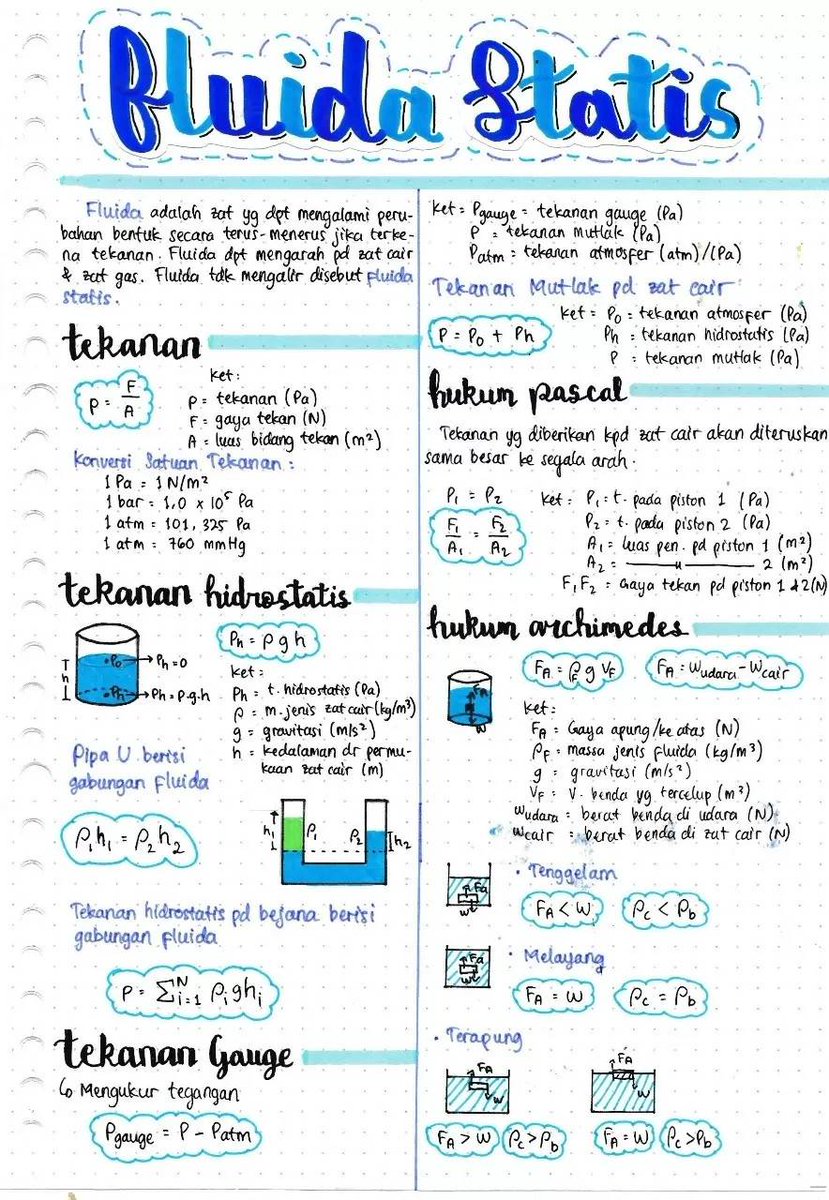 Fluida Statis
Fluida adalah zat yg dpt mengalami peru-
bahan bentuk secara terus-menerus jika terke-
na tekanan. Fluida dpt mengarah pd zat cair
& zat gas. Fluida tdk mengalir disebut fluida
statis.
tekanan
P = F/A
ket:
P = tekanan (Pa)
F = gaya tekan (N)
A = luas bidang tekan (m²)
Konversi Satuan Tekanan:
1 Pa = 1 N/m²
1 bar = 1,0 x 10⁵ Pa
1 atm = 101,325 Pa
1 atm = 760 mmHg
tekanan hidrostatis
Po
Ph=0
h
Ph
Ph=ρ.g.h
Ph = ρ g h
ket:
Ph = t. hidrostatis (Pa)
ρ = m.jenis zat cair (kg/m³)
g = gravitasi (m/s²)
h = kedalaman dr permu-
kaan zat cair (m)
Pipa U berisi
gabungan fluida
ρ₁h₁ = ρ₂h₂
h₁
ρ₁
ρ₂
h₂
Tekanan hidrostatis pd bejana berisi
gabungan fluida
P = Σᴺᵢ₌₁ ρᵢghᵢ
tekanan Gauge
↳ Mengukur tegangan
Pgauge = P - Patm
ket = Pgauge = tekanan gauge (Pa)
P = tekanan mutlak (Pa)
Patm = tekanan atmosfer (atm)/(Pa)
Tekanan Mutlak pd zat cair
P = Po + Ph
ket = Po = tekanan atmosfer (Pa)
Ph = tekanan hidrostatis (Pa)
P = tekanan mutlak (Pa)
hukum pascal
Tekanan yg diberikan kpd zat cair akan diteruskan
sama besar ke segala arah.
P₁ = P₂
F₁/A₁ = F₂/A₂
ket = P₁ = t. pada piston 1 (Pa)
P₂ = t. pada piston 2 (Pa)
A₁ = luas pen. pd piston 1 (m²)
A₂ = ——— 〃 ——— 2 (m²)
F₁F₂ = Gaya tekan pd piston 1 & 2 (N)
hukum archimedes
FA
W
FA = ρF g VF
FA = Wudara - Wcair
ket:
FA = Gaya apung/ke atas (N)
ρF = massa jenis fluida (kg/m³)
g = gravitasi (m/s²)
VF = V. benda yg tercelup (m³)
Wudara = berat benda di udara (N)
Wcair = berat benda di zat cair (N)
• Tenggelam
Fa
W
FA < W
ρc < ρb
• Melayang
Fa
W
FA = W
ρc = ρb
• Terapung
FA
W
FA
W
FA > W
ρc > ρb
FA = W
ρc > ρb